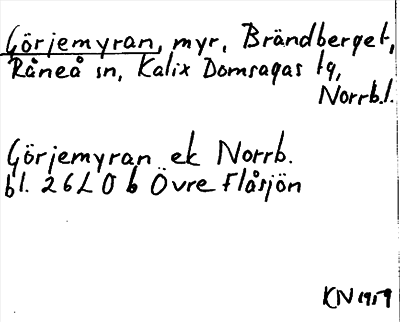 Görjemyran, myr, Brändberget,
Råneå sn, Kalix Domsagas tg,
Norrb.l.
Görjemyran ek Norrb.
bl. 26 L 0 b Övre Flåsjön
KN 1959